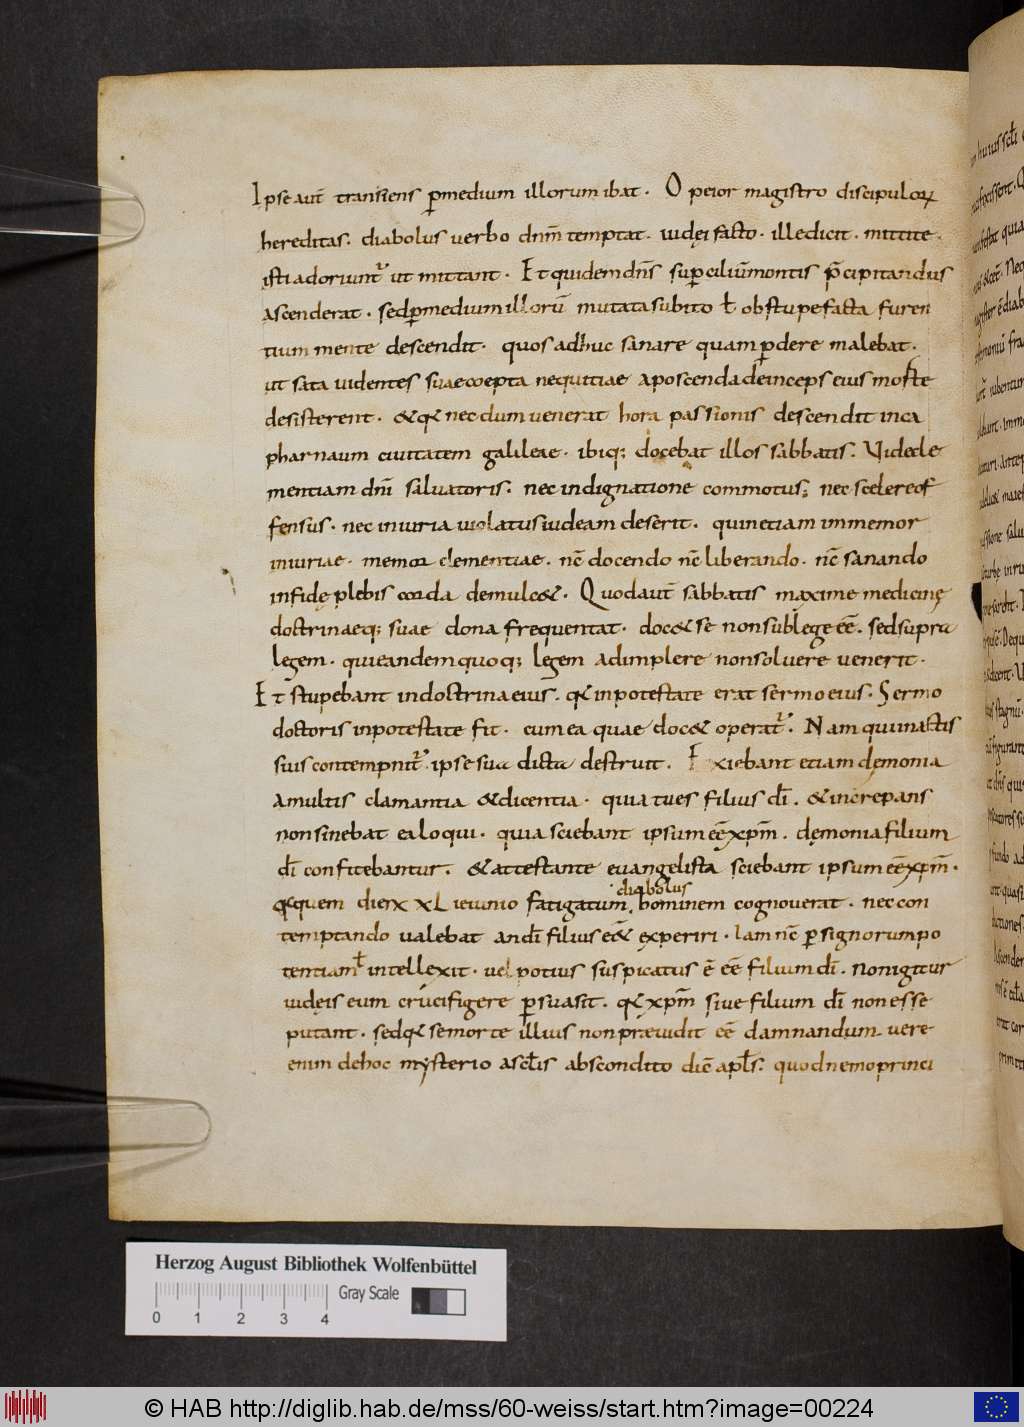 Ipse aut̄ transiens ꝑmedium illorum ibat. O peior magistro discipuloꝝ
hereditas. diabolus uerbo dnm̄ temptat. iudęi facto. ille dicit. mittite
isti adoriunt᷑ ut mittant. Et quidem dn̄s suꝑciliū montis p̄cipitandus
ascenderat. sed ꝑmedium illorū mutata subito ł obstupefacta furen
tium mente descendit. quos adhuc sanare quam ꝑdere malebat.
ut sata uidentes suae coepta nequitiae aposcenda deinceps eius morte
desisterent. &q̄ nec dum uenerat hora passionis descendit in ca
pharnaum ciuitatem galileae. ibiq; docebat illos sabbatis. Vide cle
mentiam dn̄i saluatoris. nec indignatione commotus; nec scelere of
fensus. nec iniuria uiolatus iudeam deserit. quin etiam immemor
iniuriae. memor clementiae. nc̄ docendo nc̄ liberando. nc̄ sanando
infidę plebis corda demulc&. Quod aut̄ sabbatis maxime medicinę
doctrinaeq; suae dona frequentat. doc& se non sub lege ēē. sed supra
legem. quieandem quoq; legem adimplere non soluere uenerit.
Et stupebant in doctrina eius. q̄ in potestate erat sermo eius. Sermo
doctoris in potestate fit. cum ea quae doc& operat᷑. Nam qui in actis
suis contempnit᷑. ipse sua dicta destruit. Exiebant etiam dęmonia
a multis clamantia &dicentia. quia tu es filius dī. &increpans
non sinebat ea loqui. quia sciebant ipsum ēē xp̄m. dęmonia filium
dī confitebantur. &attestante euangelista sciebant ipsum ēē xp̄m.
q̄quem dierx xL ieiunio fatigatum. hominem cognouerat. nec con
diabolus
temptando ualebat an dī filius e&̄ experiri. Iam nc̄ ꝑ signorum po
tentiam ł intellexit. uel potius suspicatus ē ēē filium dī. Non igitur
iudęis eum crucifigere ꝑsuasit. q̄ xp̄m siue filium dī non esse
putant. sed q̄ se morte illius non praeuidit ēē damnandum. uere
enim de hoc mysterio a scl̄is abscondito dic̄ apl̄s. quod nemo princi
Herzog August Bibliothek Wolfenbüttel
Gray Scale
0 1 2 3 4
© HAB http://diglib.hab.de/mss/60-weiss/start.htm?image=00224